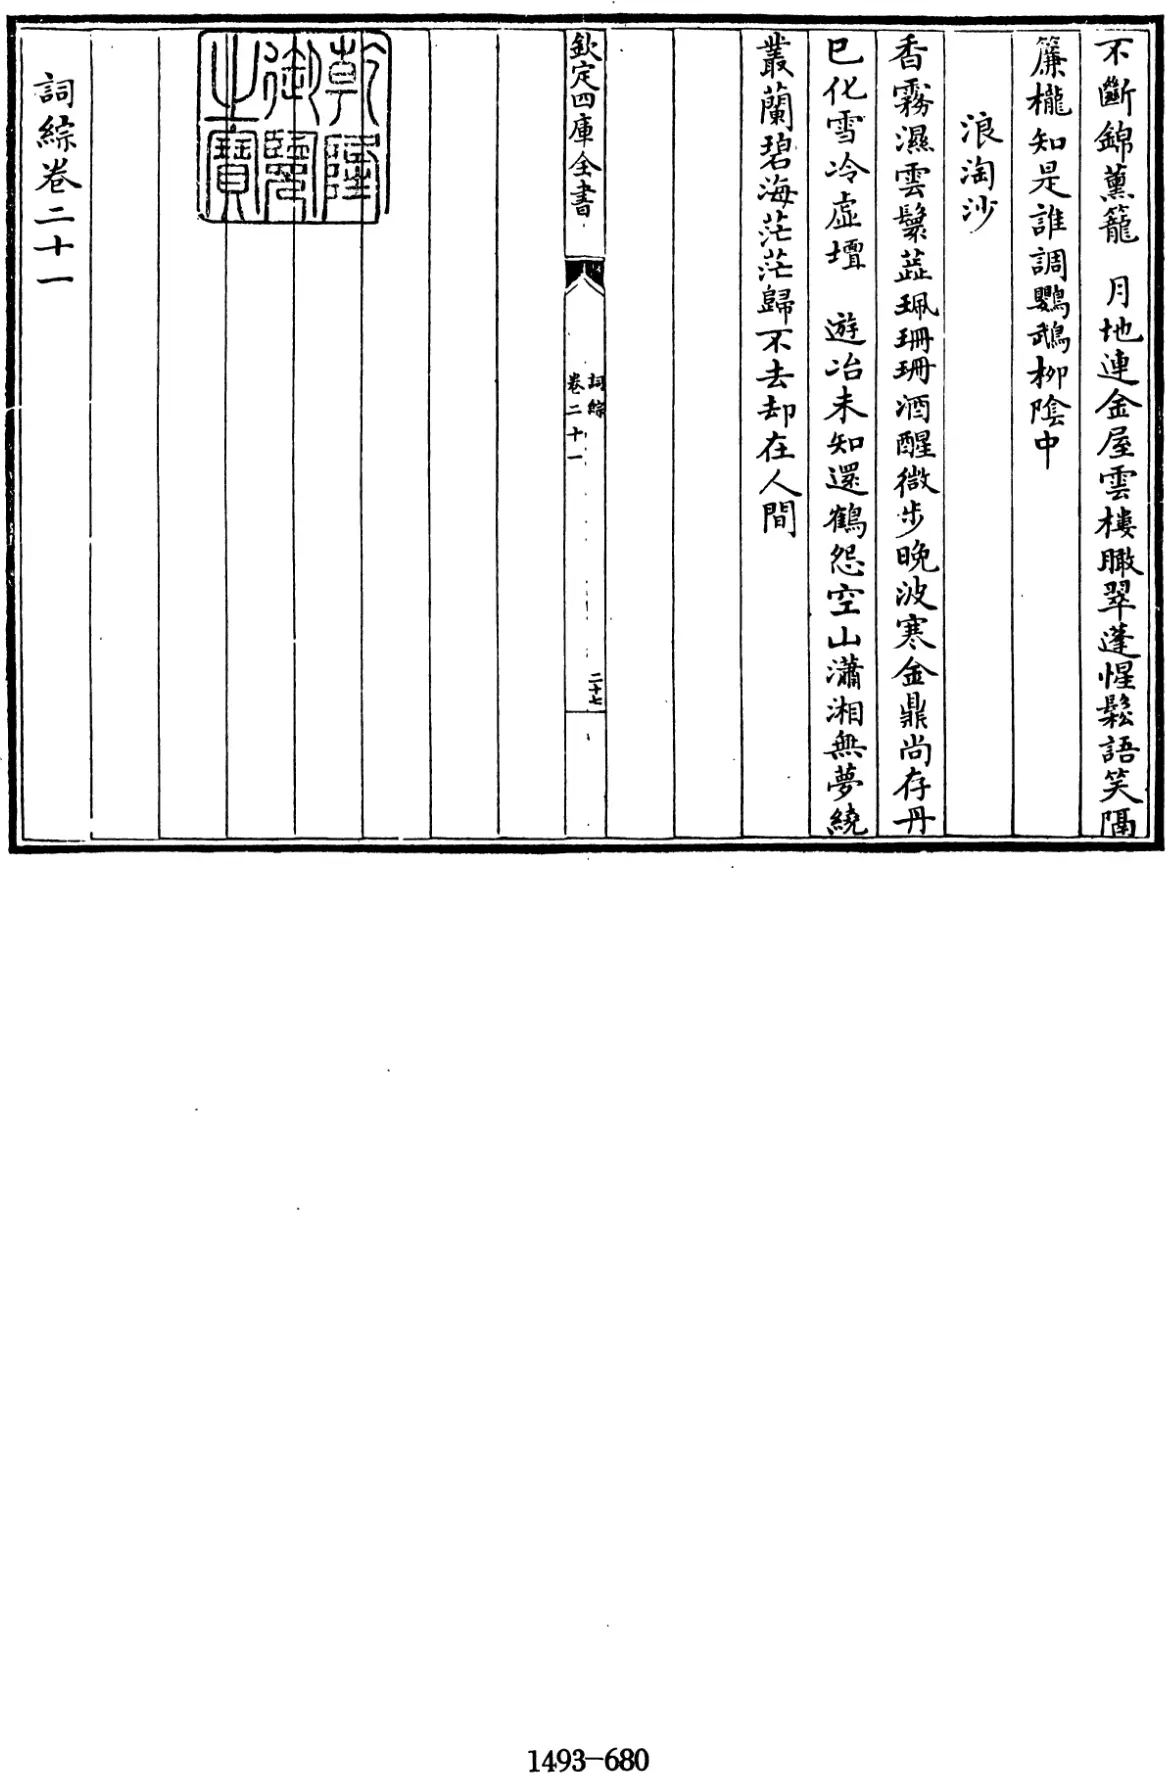 不斷錦薰籠　月地連金屋雲樓瞰翠蓬惺鬆語笑隔
簾櫳知是誰調鸚鵡柳陰中
浪淘沙
香霧濕雲鬟蕋珮珊珊酒醒微步晚波寒金鼎尚存丹
巳化雪冷虛壇　遊冶未知還鶴怨空山瀟湘無夢繞
叢蘭碧海茫茫歸不去却在人間
欽定四庫全書
詞綜
卷二十一
二十七
乾隆
御覽
之寶
詞綜卷二十一
1493-680